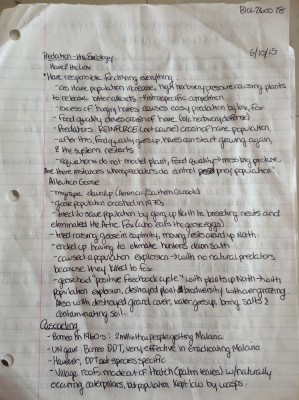 BIOL2600 T8
5/10/15
Predation - the Ecology
Hare & the Lynx
• Hare responsible for driving everything
- as hare population increases, high herbivory pressure causing plants
to release bitter → intraspecific competition
- excess of hungry hares causes easy predation by lynx, fox
- Feed quality drives crash of hare (b/c herbivory defense)
- Predators REINFORCE (not cause) crash of hare population
- after this food quality goes up, hares can start growing again,
& the system restarts
- equations do not model plant, feed quality → missing picture.
Are there instances where predators do control prey population?
Atlantic Geese
- migrate (America/Southern Canada)
- goose population exploded in 1970s
- tried to save population by going up North to breeding nests and
eliminated the Artic Fox (who eats the goose eggs)
- tried raising geese in captivity, moving nests around up North
- ended up having to eliminate hunters down south
- caused a population explosion → with no natural predators
because they killed to fox
- goose had "positive feedback cycle" with plants up North → with
population explosion, destroyed plant biodiversity with overgrazing
Also with destroyed ground cover, water goes up, bring salts &
contaminating soil.
Cascading
- Borneo in 1960's: 2 million+ ppl getting Malaria
- UN gave Borneo DDT, very effective in eradicating Malaria
- However, DDT not species specific
- Village roofs made out of thatch (palm leaves) w/ naturally
occuring caterpillars, but population kept low by wasps.